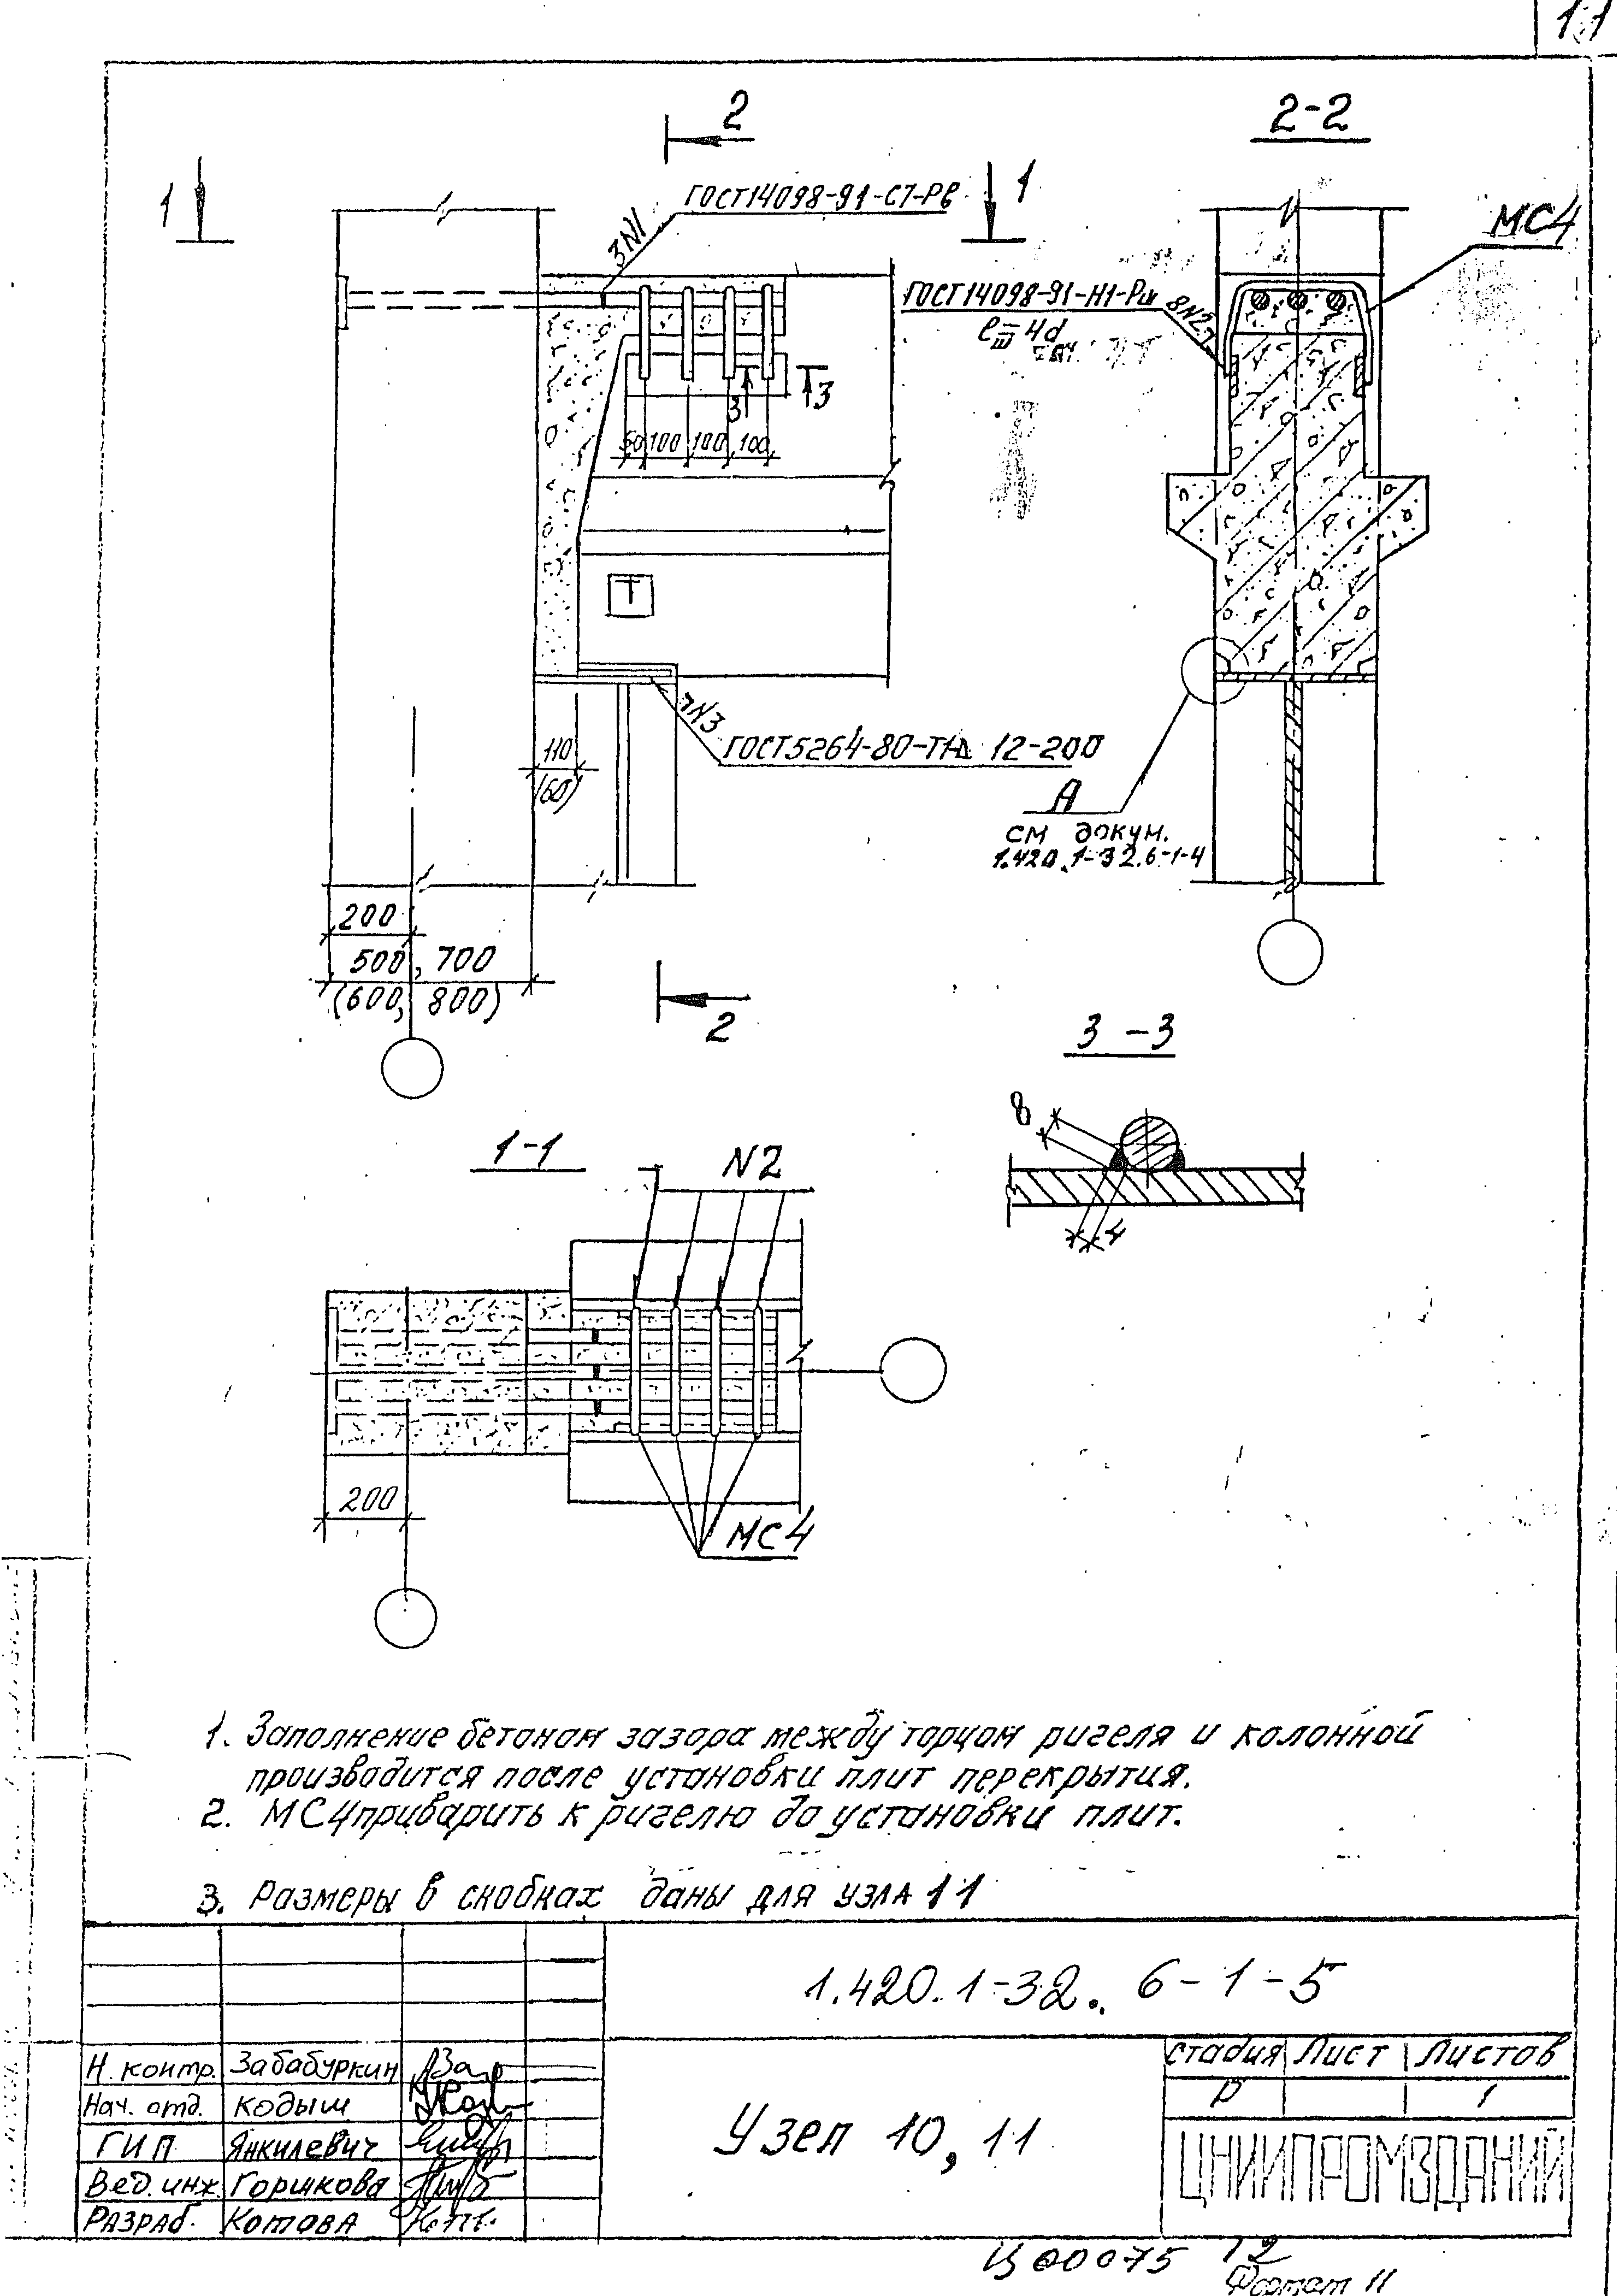 11
2
2-2
1
ГОСТ14098-91-С7-Рв
1
3N1
МС4
ГОСТ14098-91-Н1-Рш
8N2
ℓш = 4d
3
3
50 100 100 100
Т
7N3
110
(60)
ГОСТ5264-80-Т1-⊿ 12-200
А
см докум.
1.420.1-32.6-1-4
200
500, 700
(600, 800)
2
3-3
8
4
1-1
N2
200
МС4
1. Заполнение бетоном зазора между торцом ригеля и колонной
производится после установки плит перекрытия.
2. МС4 приварить к ригелю до установки плит.
3. Размеры в скобках даны для узла 11
1.420.1-32. 6-1-5
Н. контр. Забабуркин
Нач. отд. Кодыш
ГИП Янкилевич
Вед. инж. Горшкова
Разраб. Котова
Узел 10, 11
стадия Лист Листов
Р 1
ЦНИИПРОМЗДАНИЙ
Ц00075 12
Формат 11